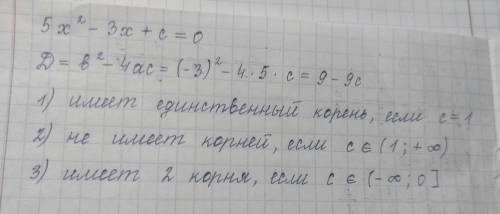 5x² - 3x + c = 0
D = b² - 4ac = (-3)² - 4·5·c = 9 - 9c
1) имеет единственный корень, если c=1
2) не имеет корней, если c ∈ (1; +∞)
3) имеет 2 корня, если c ∈ (-∞; 0]